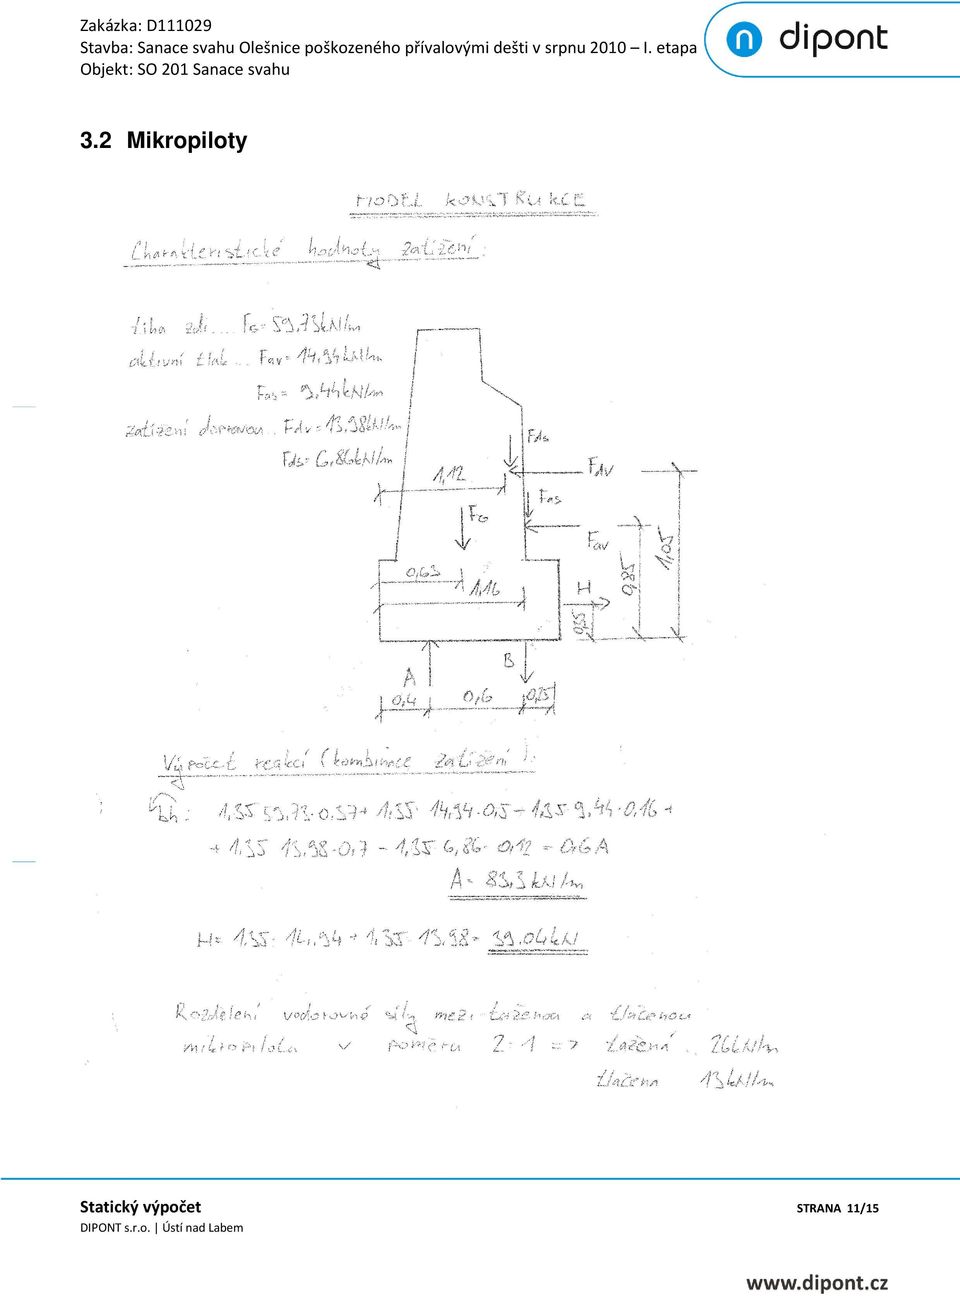 Zakázka: D111029
Stavba: Sanace svahu Olešnice poškozeného přívalovými dešti v srpnu 2010 – I. etapa
Objekt: SO 201 Sanace svahu
n dipont
3.2 Mikropiloty
MODEL KONSTRUKCE
Charakteristické hodnoty zatížení:
tíha zdi.... FG= 59,73kN/m
aktivní tlak... Fav= 14,94kN/m
Fas= 9,44kN/m
zatížení dopravou.. Fdv=13,98kN/m
Fds= 6,86kN/m
Fds
1,12
Fdv
Fas
FG
Fav
0,63
1,16
H
0,35
0,85
1,05
A
B
0,4
0,6
0,25
Výpočet reakcí (kombinace zatížení):
bh: 1,35 59,73·0,37+ 1,35· 14,94·0,5-1,35·9,44·0,16 +
+ 1,35 13,98·0,7 - 1,35·6,86· 0,12 = 0,6A
A= 83,3kN/m
H= 1,35· 14,94 + 1,35·13,98= 39,04kN
Rozdělení vodorovné síly mezi taženou a tlačenou
mikropilotu v poměru 2:1 => tažená.. 26kN/m
tlačena 13kN/m
Statický výpočet
STRANA 11/15
DIPONT s.r.o. | Ústí nad Labem
www.dipont.cz